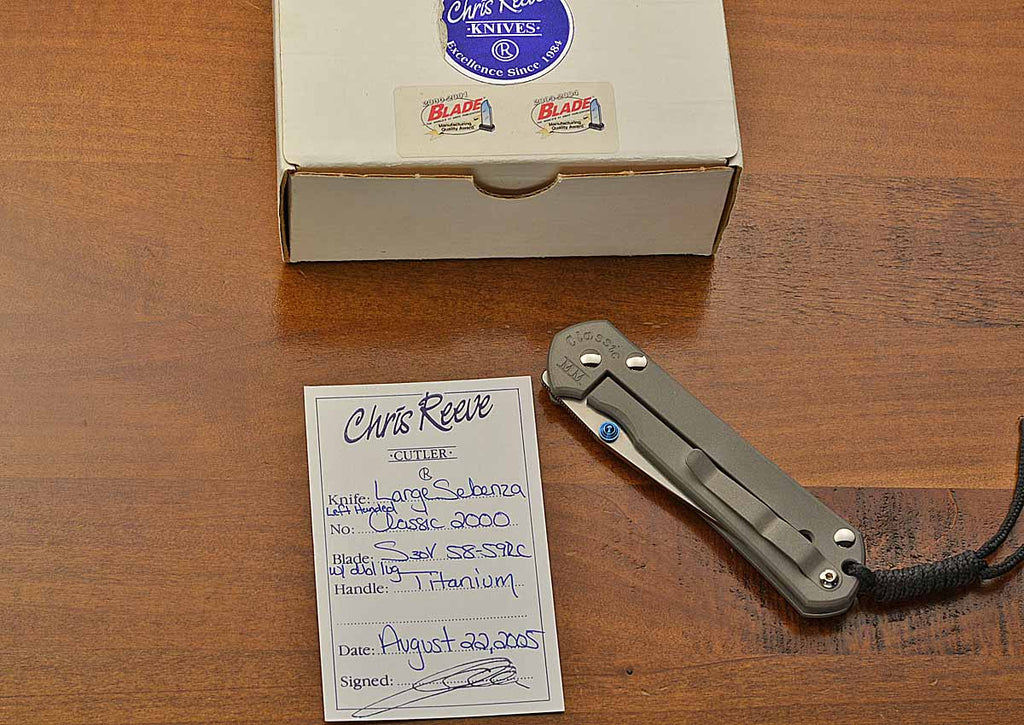 Chris Reeve
·KNIVES·
R
Excellence Since 1984
2000-2001
BLADE
Manufacturing
Quality Award
2003-2004
BLADE
Manufacturing
Quality Award
Classic
MM
Chris Reeve
·CUTLER·
R
Knife: Large Sebenza
Left Handed
No: Classic 2000
Blade: S30V 58-59RC
w/ dbl lug
Handle: Titanium
Date: August 22, 2005
Signed: